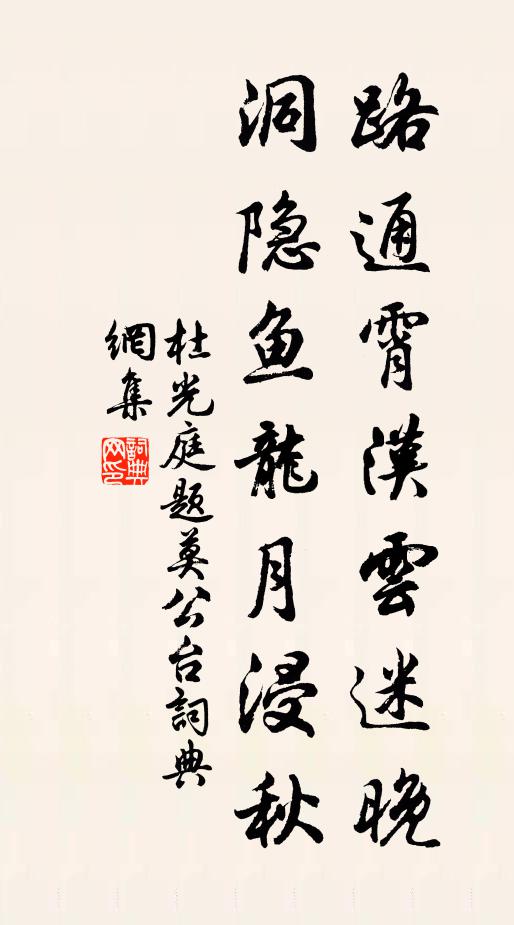 路通霄漢雲迷晚
洞隐鱼龍月浸秋
杜光庭题莫公台詞典
網集
詞典网印